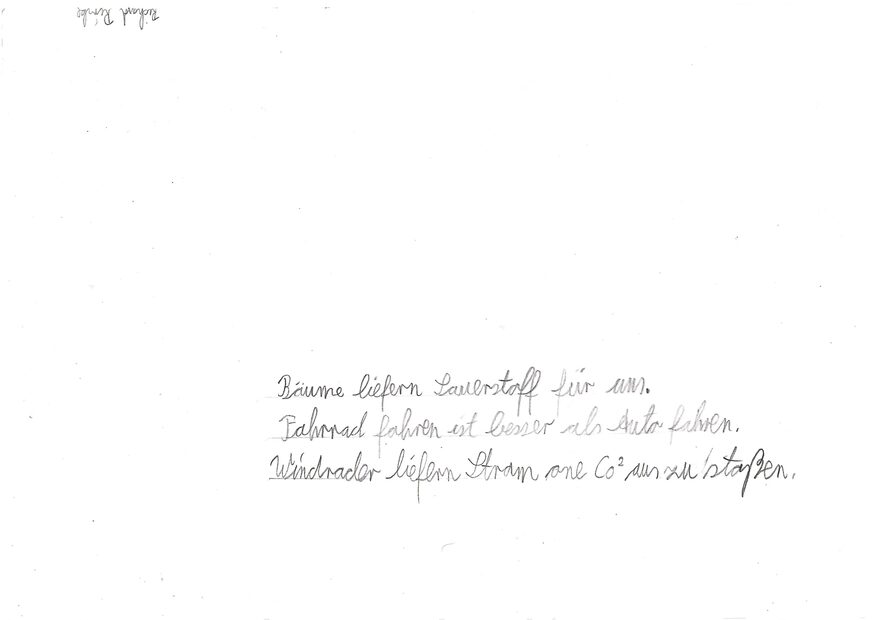 Richard Rimke
Bäume liefern Sauerstoff für uns.
Fahrrad fahren ist besser als Auto fahren.
Windrader liefern Strom one Co² aus zu stoßen.